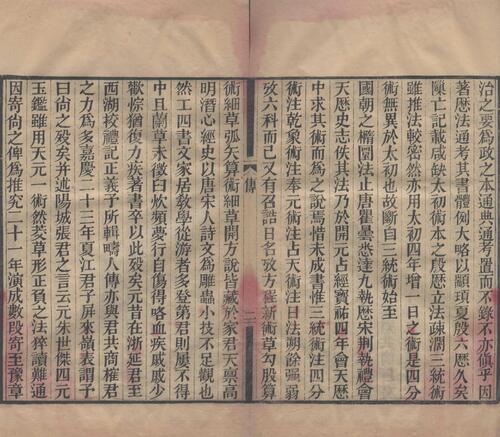 治之要爲政之本通典通考置而不錄不亦傎乎因
著厯法通考其書體例大略以顓頊夏殷六厯久矣
區亡記載咸缺太初術本之殷厯立法疏濶三統術
雖推法較密然亦用太初四年增一日之術是四分
術無異於太初也故斷自三統術始至
國朝之橢圜法止唐瞿曇悉達九執厯宋荆執禮會
天厯史志佚其法乃於開元占經寶祐四年會天厯
中求其術而爲之說焉惜未成書惟三統術注四分
術注乾象術注奉元術注占天術注日法朔餘强弱
攷六科而已又有召誥日名攷方程新術草勾股算
傳
三
術細草弧矢算術細草開方說皆藏於家君天稟高
明潛心經史以唐宋人詩文爲雕蟲小技不足觀也
然工四書文家居敎學從游者多登第君則屢不得
中且蘭草未徵白炊頻夢行自傷得咯血疾戚戚少
歡悰猶復力疾著書卒以此歿矣元昔在浙延君至
西湖校禮記正義予所輯疇人傳亦與君共商榷君
之力爲多嘉慶二十三年夏江君子屏來嶺表謂予
曰尙之歿矣幷述陽城張君之言云元朱世傑四元
玉鑑雖用天元一術然茭草形正負之法猝讀難通
因寄尙之俾爲推究二十一年演成數段寄至豫章